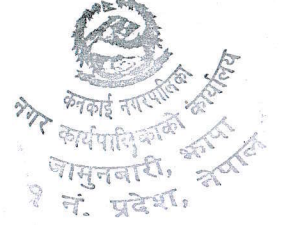 कनकाई नगरपालिका
नगर कार्यपालिकाको कार्यालय
जामुनबारी, झापा
१ नं. प्रदेश, नेपाल